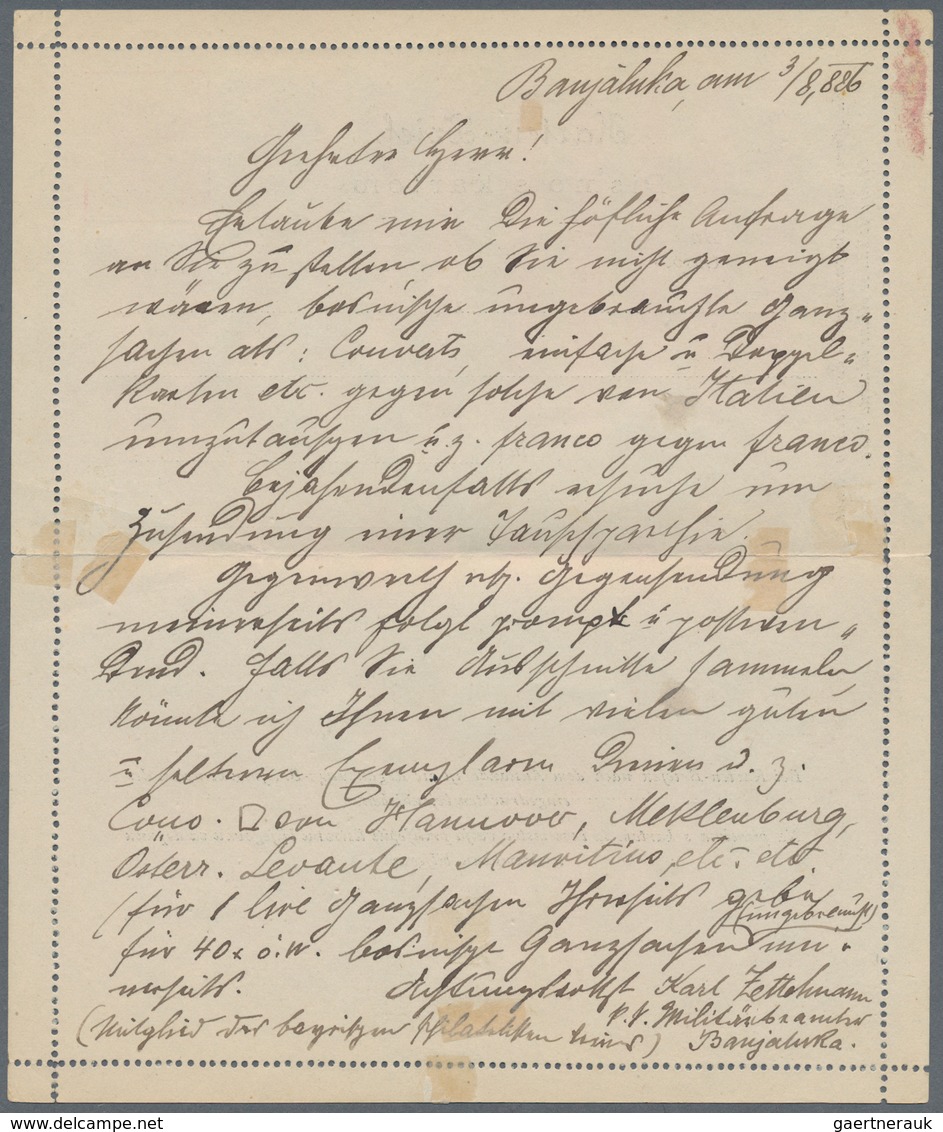 Banjaluka, am 3/8, 886
Geehrter Herr!
Erlaube mir die höfliche Anfrage
an Sie zu stellen, ob Sie nicht geneigt
wären, bosnische ungebrauchte Ganz-
sachen als: Couverts, einfache u Doppel-
karten etc. gegen solche von Italien
umzutauschen u. z. franco gegen franco.
Bejahendenfalls ersuche um
Zusendung einer Tauschparthie.
Gegenwerth rsp. Gegensendung
meinerseits folgt prompt u postwen-
dend. Falls Sie Ausschnitte sammeln
könnte ich Ihnen mit vielen guten
u seltenen Exemplaren dienen u. z.
Couv. von Hannover, Meklenburg,
Österr. Levante, Mauritius, etc. etc
(für 1 lire Ganzsachen Ihrerseits gebe
(ungebraucht)
für 40 x ö. W. bosnische Ganzsachen mei-
nerseits. Achtungsvollst Karl Zettelmann
k. k. Militärbeamter
(Mitglied des bayrischen Philatelisten Vereins) Banjaluka.
gaertnerauk